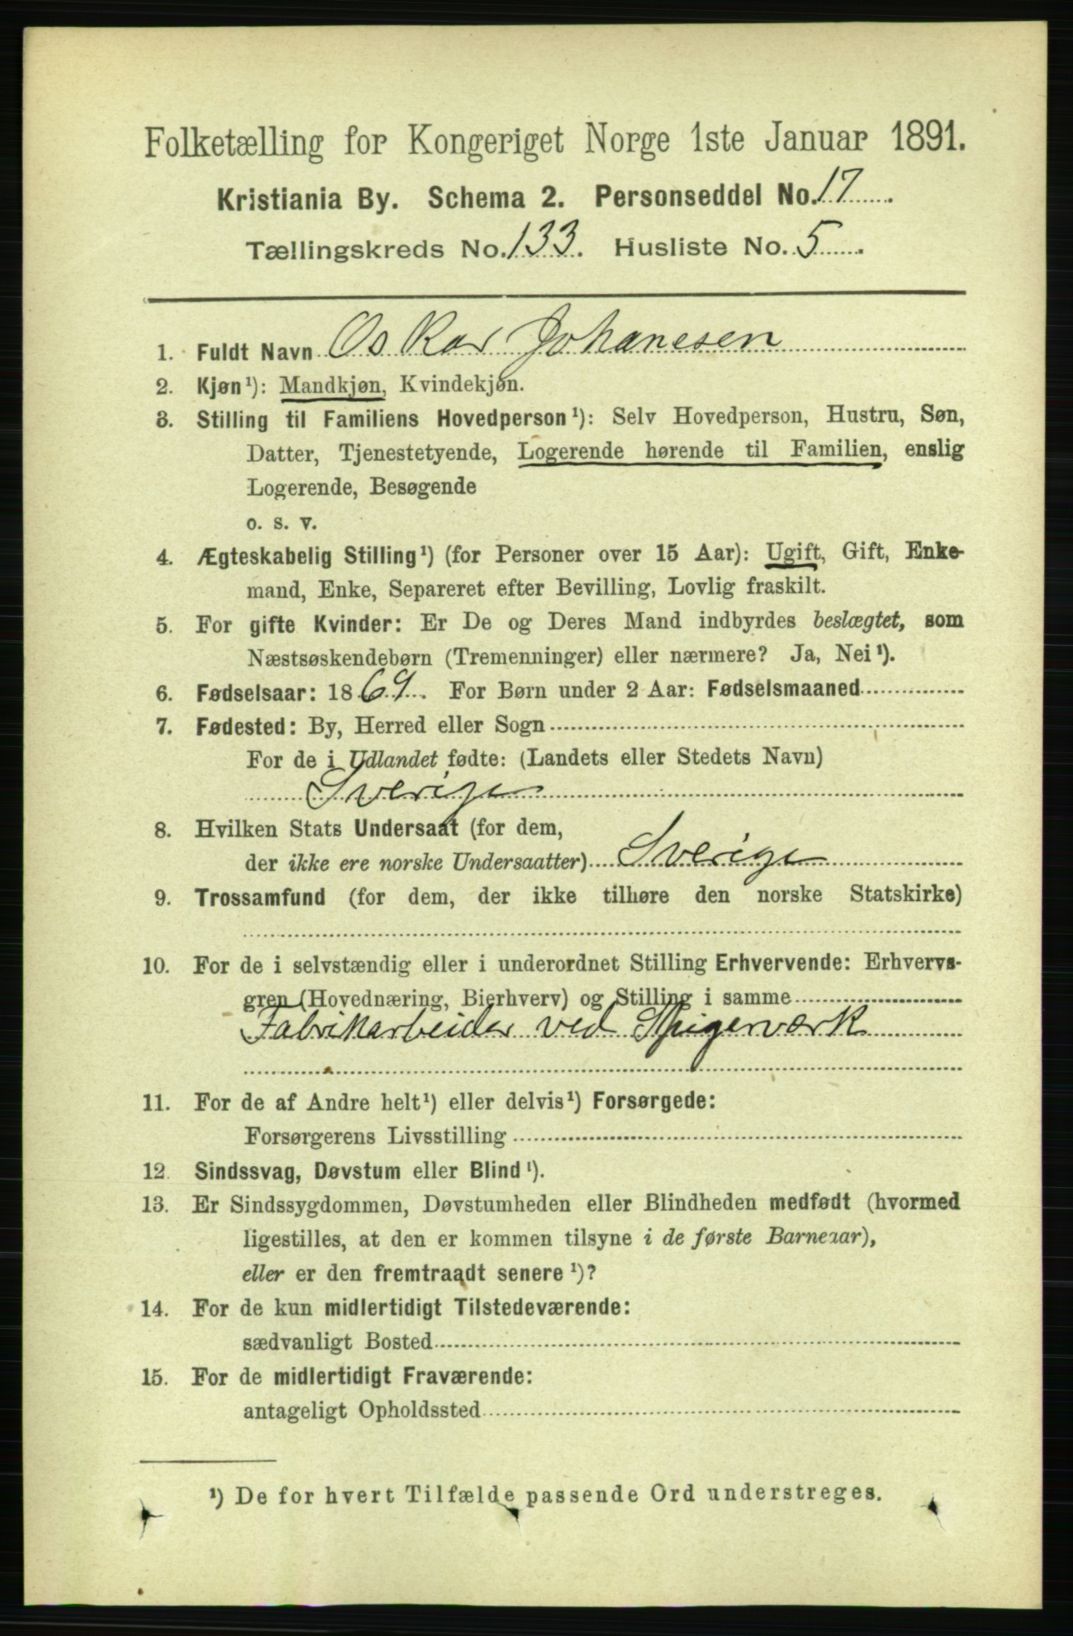 Folketælling for Kongeriget Norge 1ste Januar 1891.
Kristiania By. Schema 2. Personseddel No. 17.
Tællingskreds No. 133. Husliste No. 5.
1. Fuldt Navn Oskar Johanesen
2. Kjøn¹): Mandkjøn, Kvindekjøn.
3. Stilling til Familiens Hovedperson¹): Selv Hovedperson, Hustru, Søn,
Datter, Tjenestetyende, Logerende hørende til Familien, enslig
Logerende, Besøgende
o. s. v.
4. Ægteskabelig Stilling¹) (for Personer over 15 Aar): Ugift, Gift, Enke-
mand, Enke, Separeret efter Bevilling, Lovlig fraskilt.
5. For gifte Kvinder: Er De og Deres Mand indbyrdes beslægtet, som
Næstsøskendebørn (Tremenninger) eller nærmere? Ja, Nei¹).
6. Fødselsaar: 1869. For Børn under 2 Aar: Fødselsmaaned
7. Fødested: By, Herred eller Sogn
For de i Udlandet fødte: (Landets eller Stedets Navn)
Sverige
8. Hvilken Stats Undersaat (for dem,
der ikke ere norske Undersaatter) Sverige
9. Trossamfund (for dem, der ikke tilhøre den norske Statskirke)
10. For de i selvstændig eller i underordnet Stilling Erhvervende: Erhvervs-
gren (Hovednæring, Bierhverv) og Stilling i samme
Fabrikarbeider ved Spigerværk
11. For de af Andre helt¹) eller delvis¹) Forsørgede:
Forsørgerens Livsstilling
12. Sindssvag, Døvstum eller Blind¹).
13. Er Sindssygdommen, Døvstumheden eller Blindheden medfødt (hvormed
ligestilles, at den er kommen tilsyne i de første Barneaar),
eller er den fremtraadt senere¹)?
14. For de kun midlertidigt Tilstedeværende:
sædvanligt Bosted
15. For de midlertidigt Fraværende:
antageligt Opholdssted
¹) De for hvert Tilfælde passende Ord understreges.